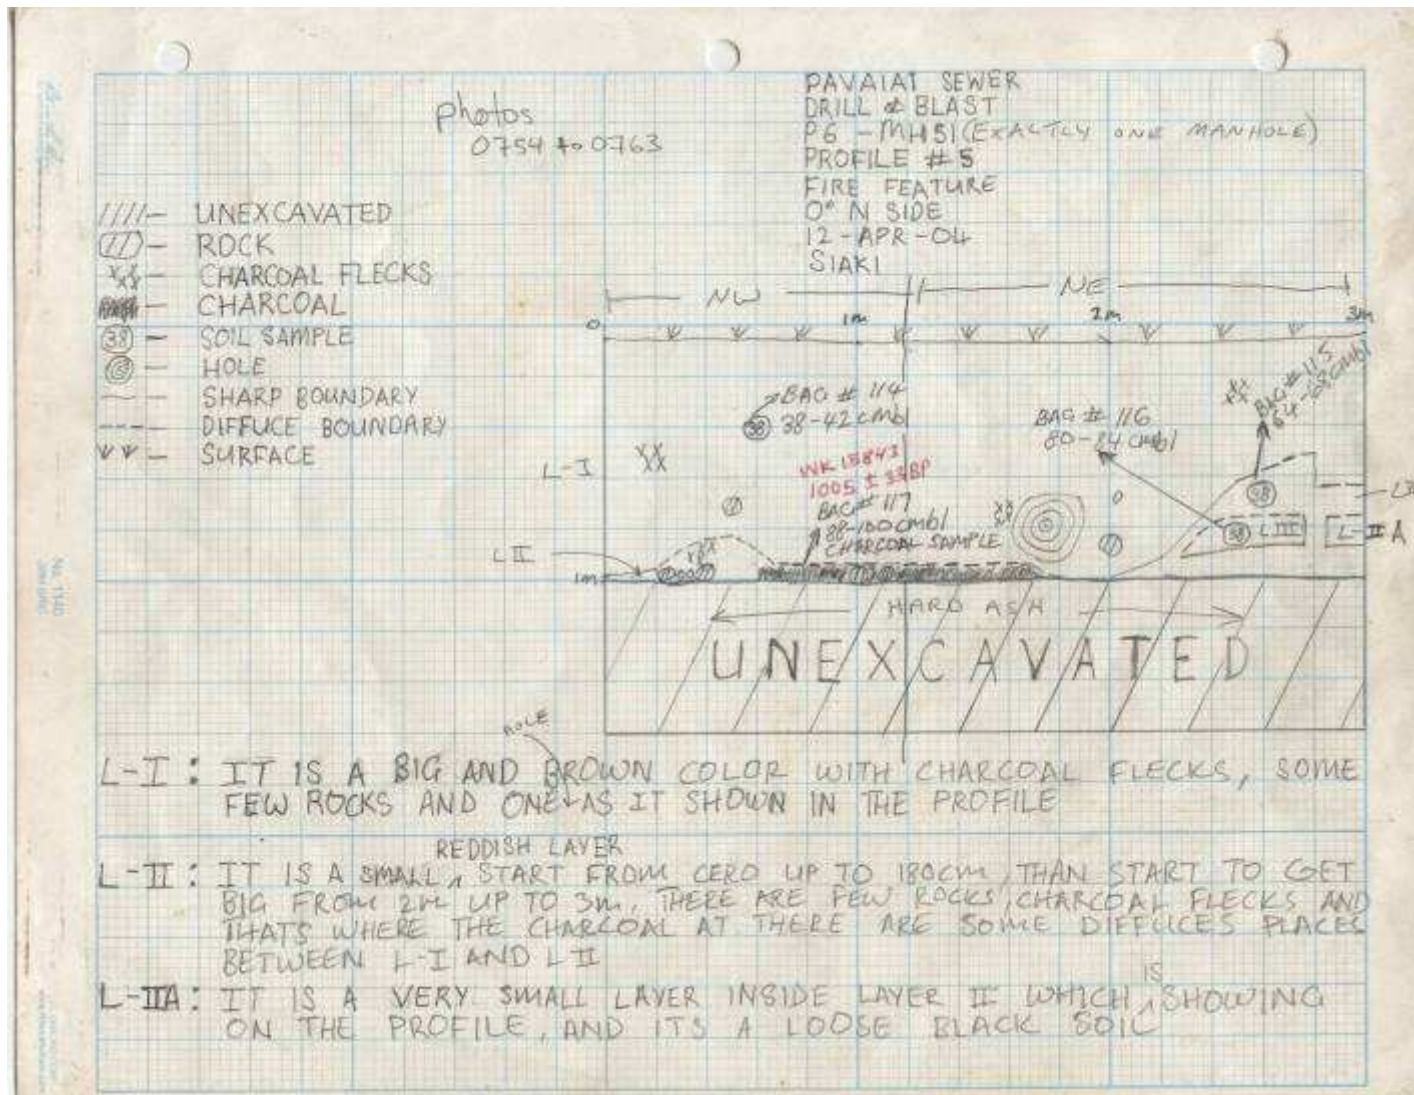 photos
0754 to 0763
PAVAIAI SEWER
DRILL & BLAST
P6 - MH51 (EXACTLY ONE MANHOLE)
PROFILE # 5
FIRE FEATURE
0° N SIDE
12-APR-04
SIAKI
//// - UNEXCAVATED
ROCK
CHARCOAL FLECKS
CHARCOAL
38 - SOIL SAMPLE
HOLE
SHARP BOUNDARY
DIFFUCE BOUNDARY
SURFACE
NW
NE
0
1m
2m
3m
BAG # 114
38-42 cmbl
38
BAG # 116
80-84 cmbl
BAG # 115
64-68 cmbl
L-I
WK 15843
1005 ± 33BP
BAG # 117
88-100 cmbl
CHARCOAL SAMPLE
38
38
L III
L-IIA
L II
1m
HARD ASH
UNEXCAVATED
HOLE
L-I: IT IS A BIG AND BROWN COLOR WITH CHARCOAL FLECKS, SOME
FEW ROCKS AND ONE AS IT SHOWN IN THE PROFILE
REDDISH LAYER
L-II: IT IS A SMALL START FROM CERO UP TO 180cm, THAN START TO GET
BIG FROM 2m UP TO 3m, THERE ARE FEW ROCKS, CHARCOAL FLECKS AND
THATS WHERE THE CHARCOAL AT THERE ARE SOME DIFFUCES PLACES
BETWEEN L-I AND L II
IS
L-IIA: IT IS A VERY SMALL LAYER INSIDE LAYER II WHICH SHOWING
ON THE PROFILE, AND ITS A LOOSE BLACK SOIL